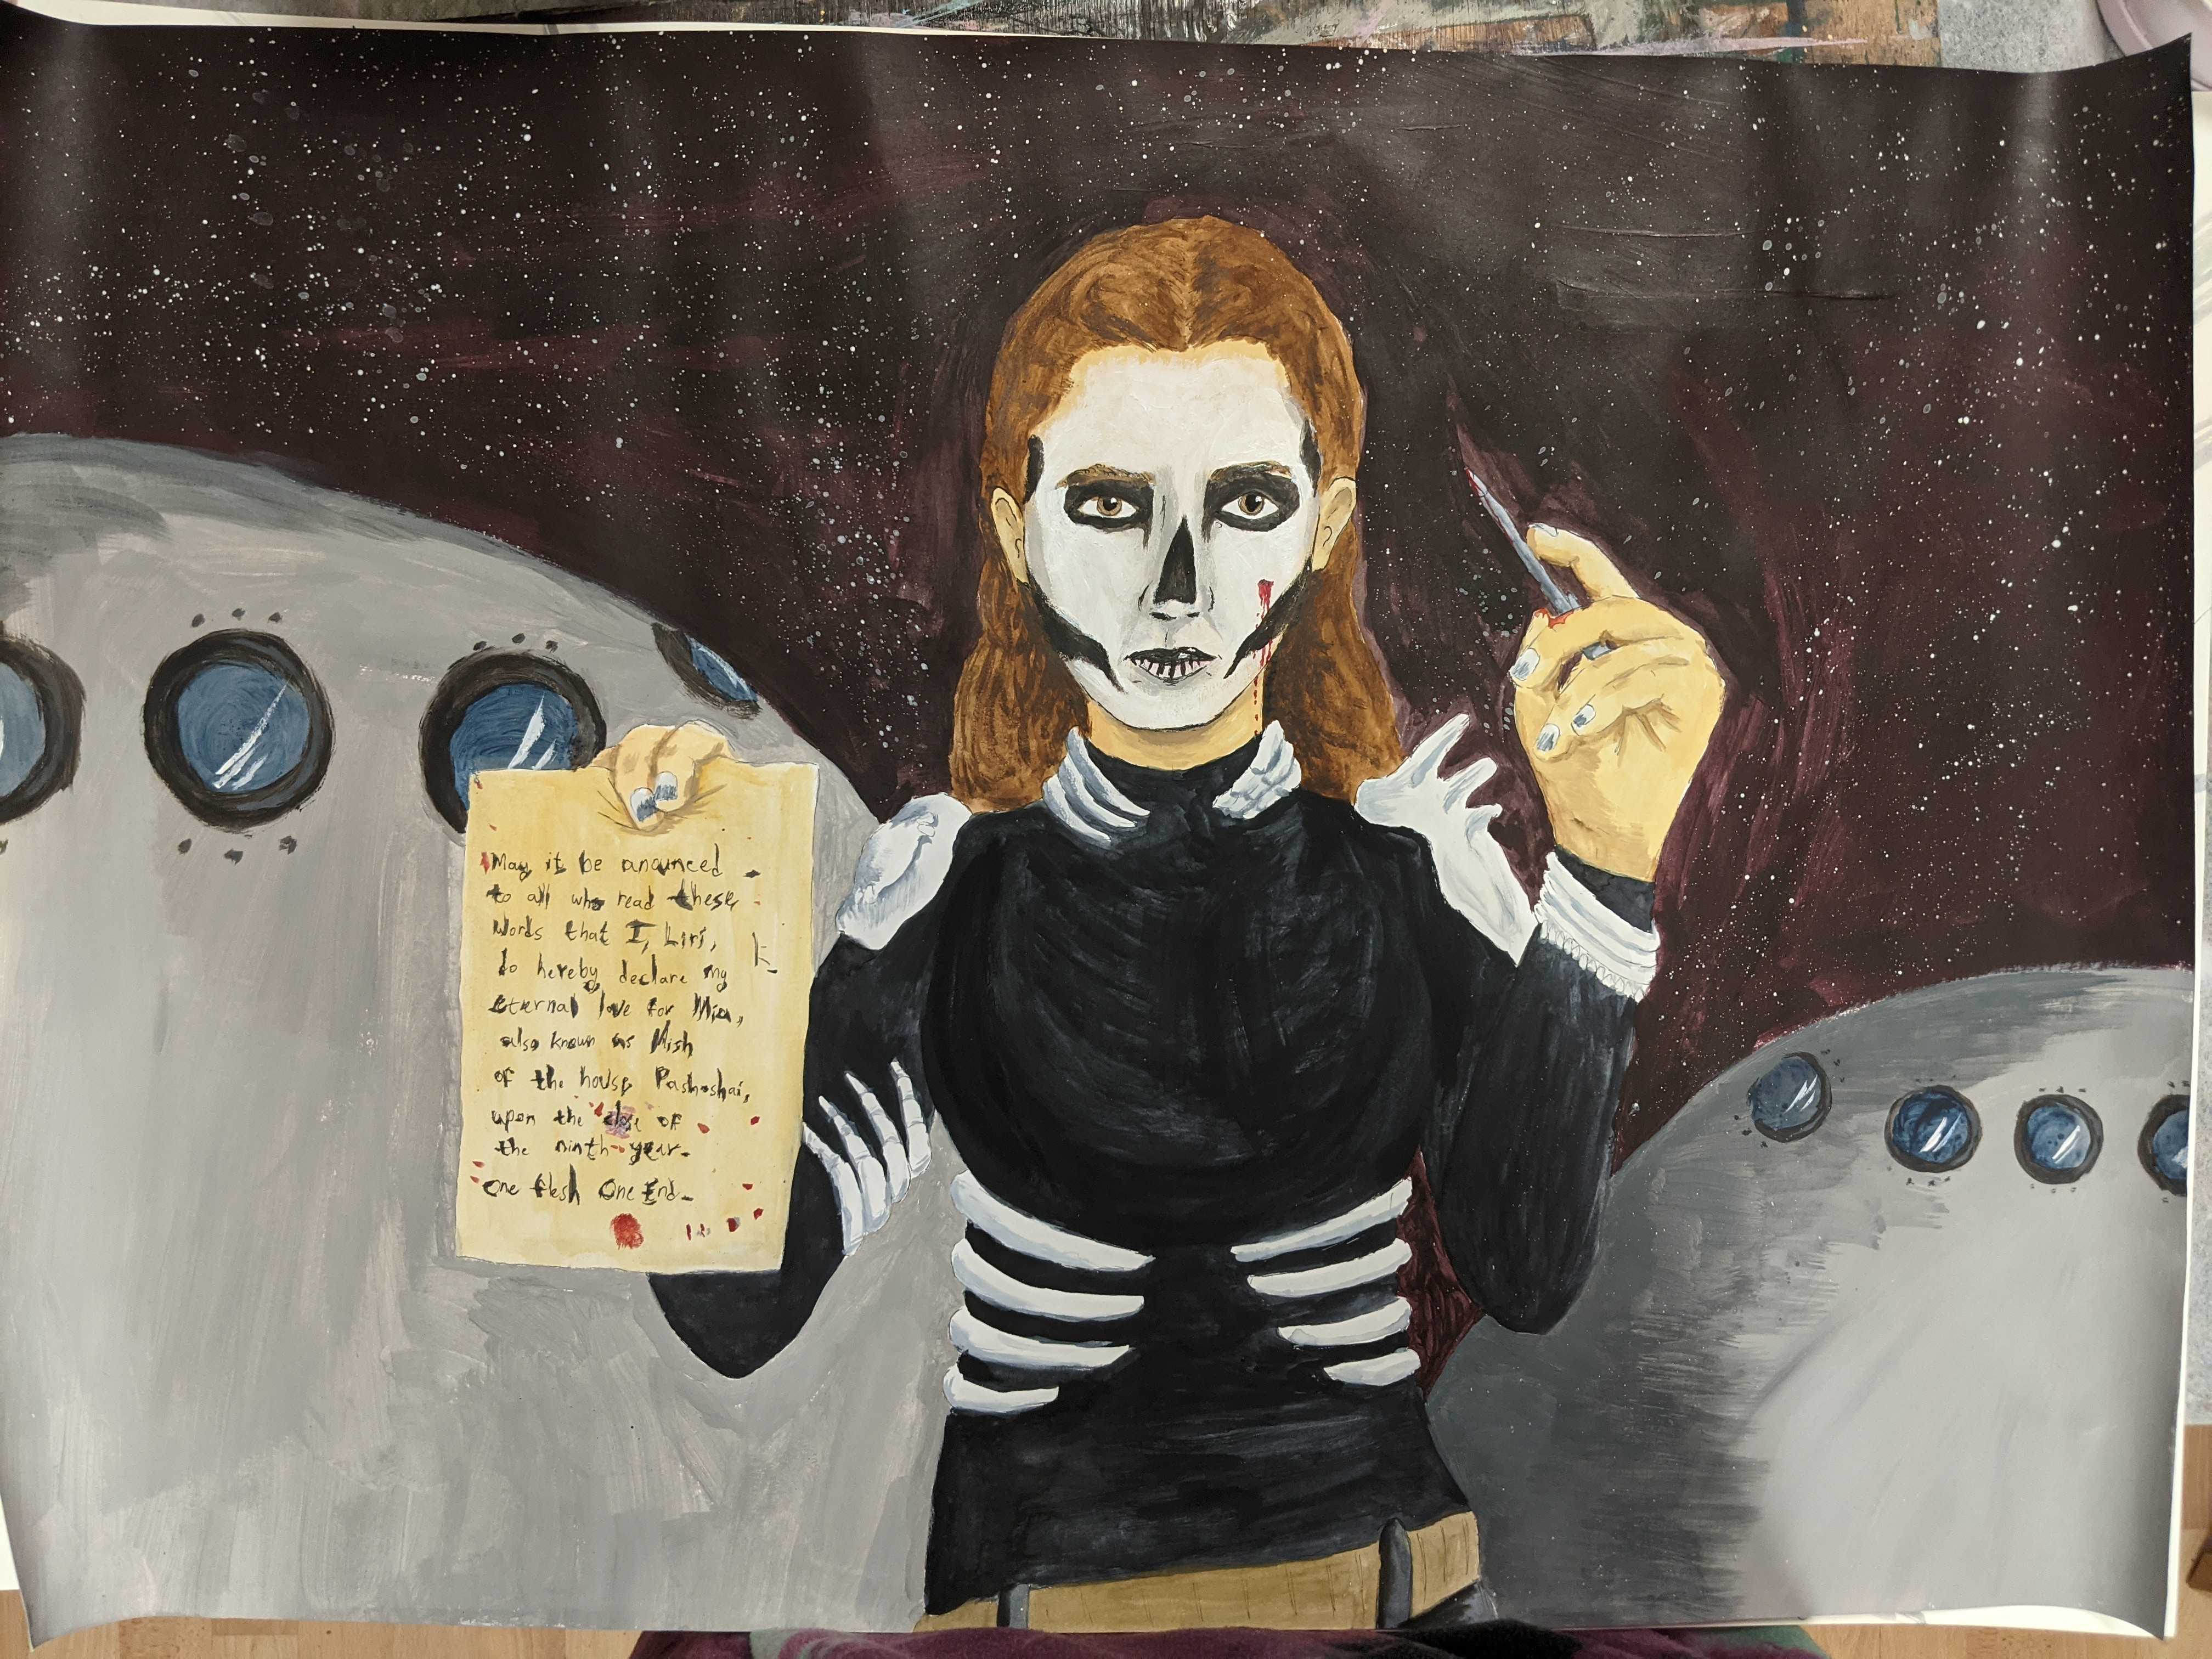 May it be anounced
to all who read these
words that I, Liri,
do hereby declare my
eternal love for Mia,
also known as Mish
of the house Pashoshai,
upon the close of
the ninth year.
One flesh One End.